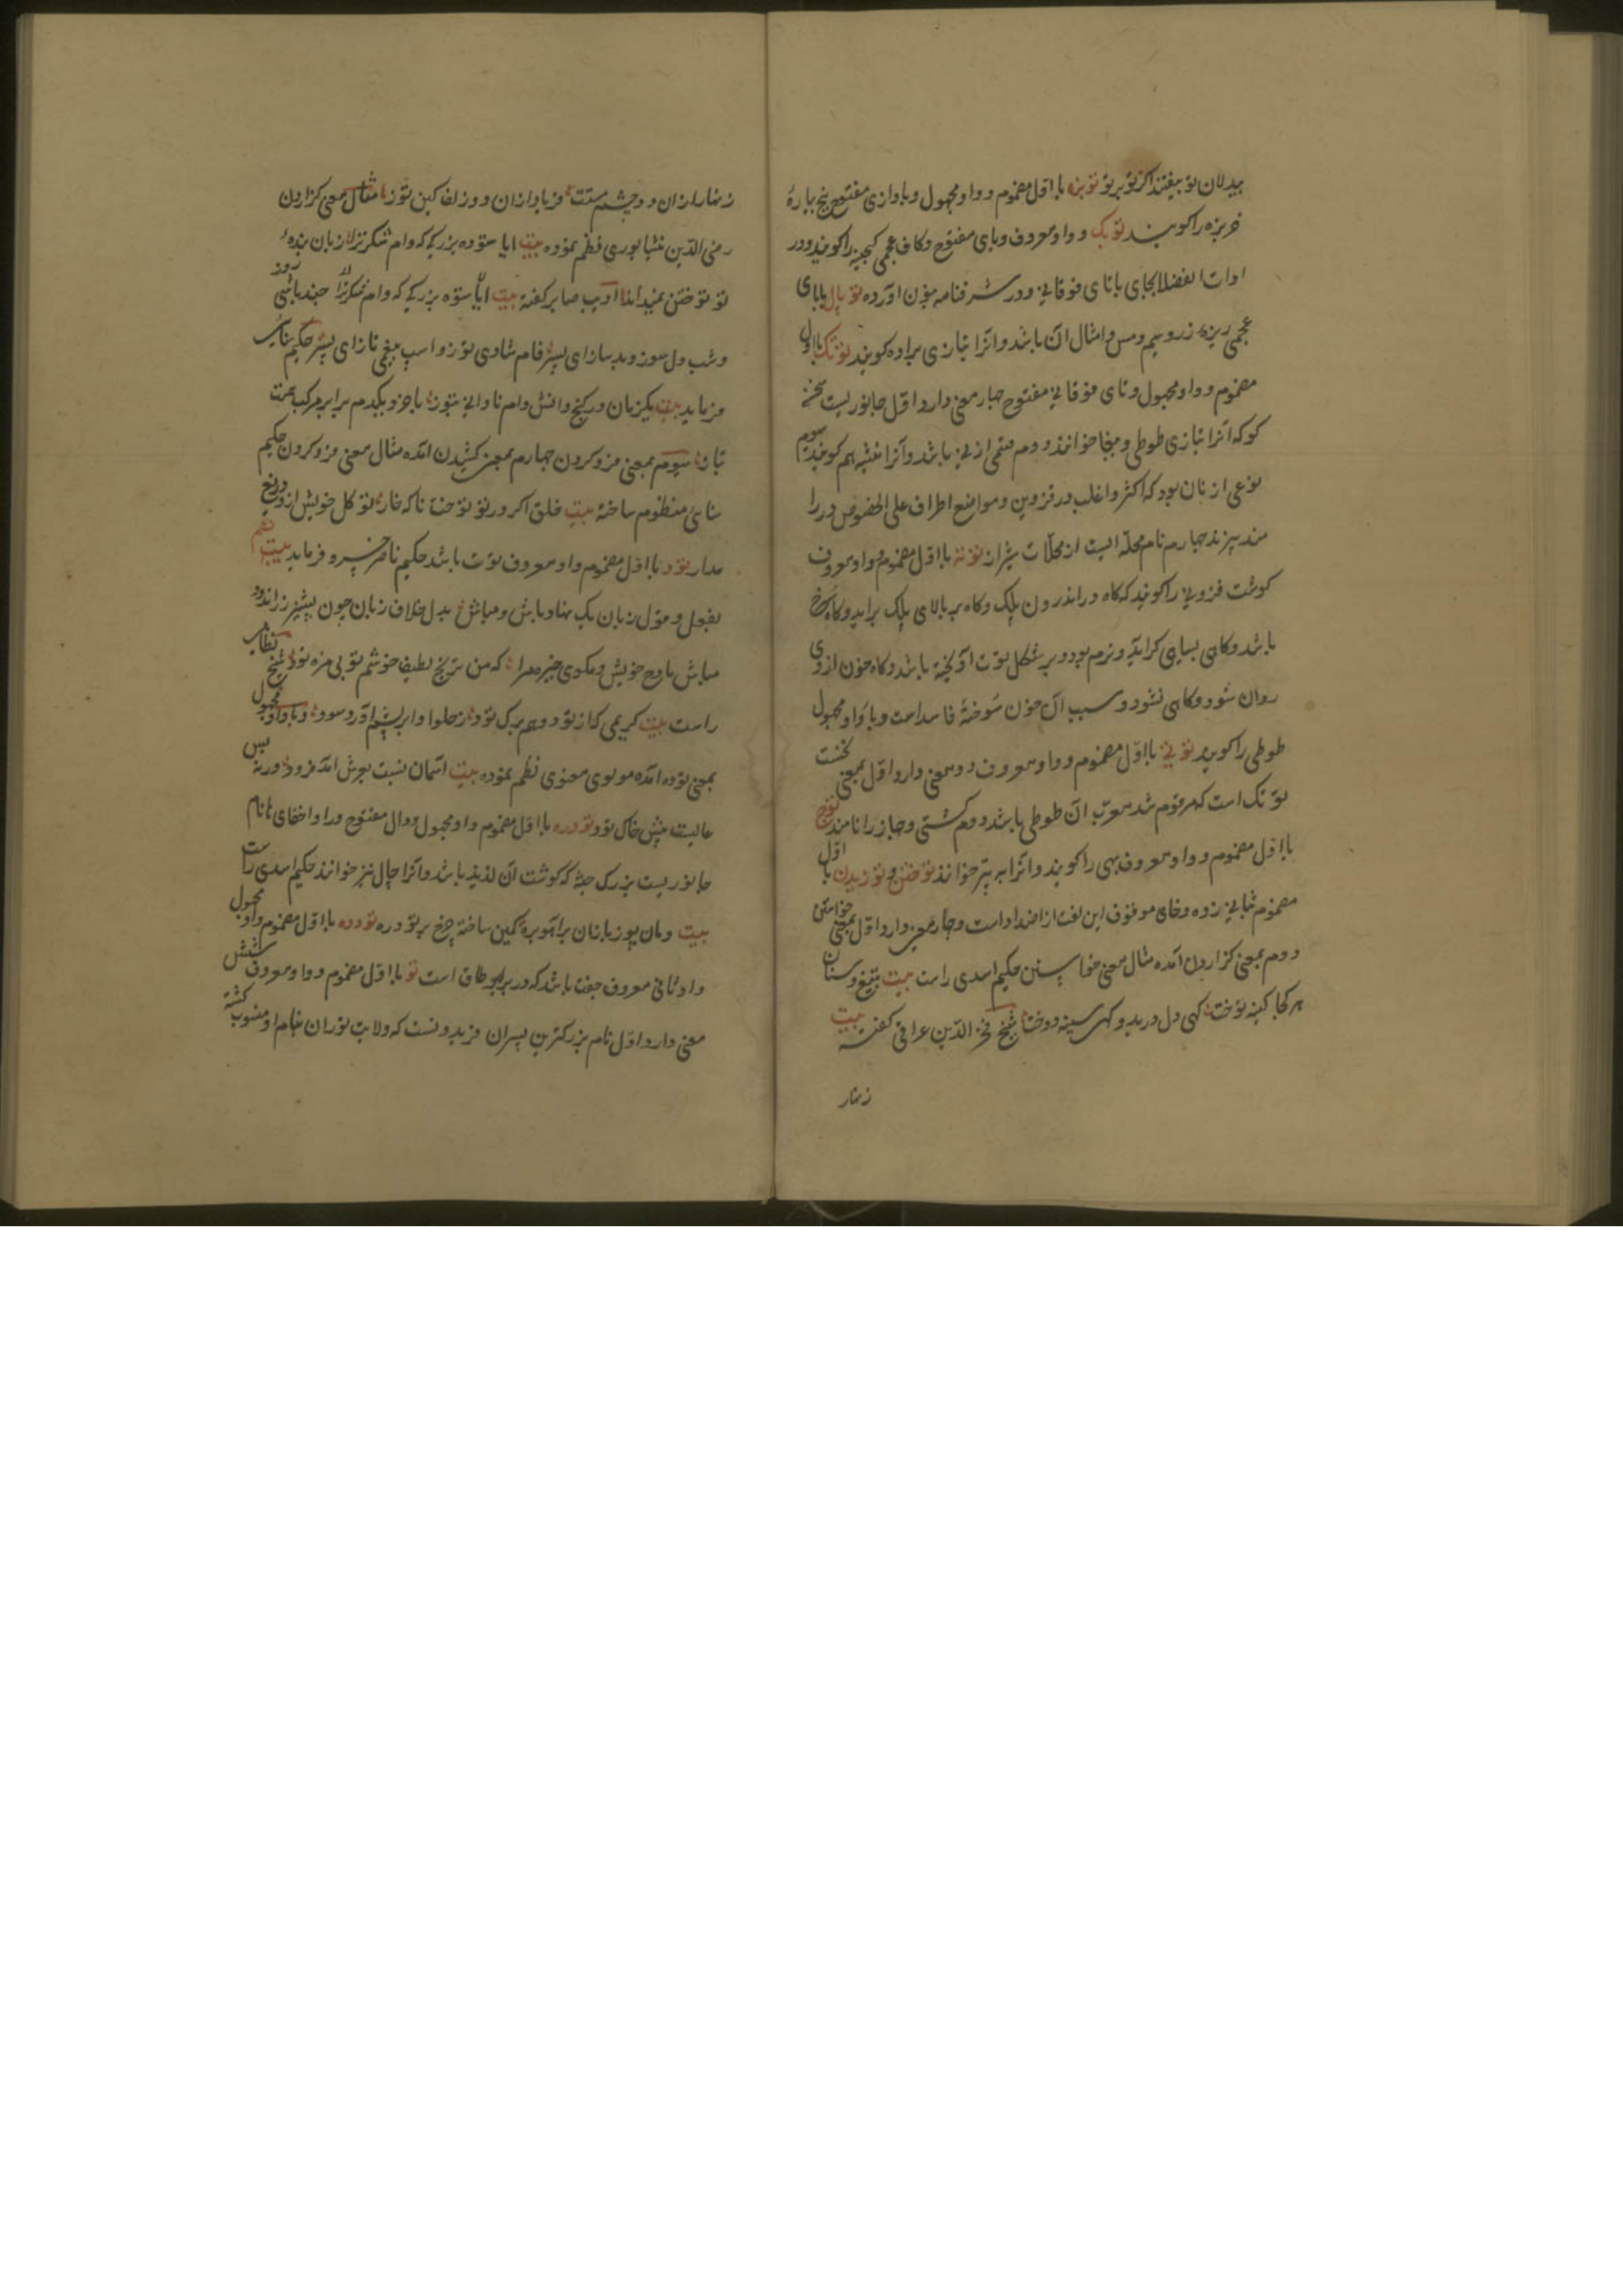 بیدلان تو بیفتند اگر تو بر تو توبزه با اوّل مضموم و واو مجهول و با و زای مفتوح پنج پارهٔ
خربزه را گویند توبک و واو معروف و بای مفتوح و کاف عجمی گنجینه را گویند و در
ادات الفضلا بجای با تای فوقانی و در شرفنامه بنون آورده توپال با بای
عجمی ریزهٔ زر و سیم و مس و امثال آن باشد و آنرا بتازی براده گویند توتک با اوّل
مضموم و واو مجهول و تای فوقانی مفتوح چهار معنی دارد اوّل جانوریست
که آنرا بتازی طوطی و ببغا خوانند دوم قسمی از نی باشد و آنرا هم گویند سیوم
نوعی از نان بود که اکثر و اغلب در قزوین و مواضع اطراف علی الخصوص در
پزند چهارم نام محلّه ایست از محلّات شیراز توته با اوّل مضموم و واو معروف
گوشت فزونی را گویند که گاه در اندرون پلک و گاه بر بالای پلک براید و گاه سرخ
باشد و گاهی بسیاهی گراید و نرم بود و بر شکل توت آویخته باشد و گاه خون از وی
روان شود و گاهی نشود و سبب آن خون سوختهٔ فاسد است و با واو مجهول
طوطی را گویند توتی با اوّل مضموم و واو معروف دو معنی دارد اوّل بمعنی نخست
توتک است که مرقوم شد معرّب آن طوطی باشد دوم کشتی و جهاز را نامند توج
با اوّل مضموم و واو معروف بهی را گویند و آنرا به نیز خوانند توختن و توزیدن با اوّل
مضموم بثانی زده و خای موقوف این لغت از اضداد است و چهار معنی دارد اوّل بمعنی خواستن
دوم بمعنی گزاردن آمده مثال معنی خواستن حکیم اسدی راست بیت بتیغ و سنان
هر کجا کینه توخت گهی دل درید و گهی سینه دوخت شیخ فخر الدّین عراقی گفته بیت
زنهار
زنهار از آن دو چشم مستت فریاد از آن دو زلف کین توز مثال معنی گزاردن
رضی الدّین نشابوری نظم نموده بیت ایا ستوده بزرگی که وام شکر ترا زبان بندهٔ
تو توختن نمیداند ادیب صابر گفته بیت ایا ستوه بزرگی که وام شکر ترا چند باشی روز
و شب دل سوز و بد ساز ای پسر وام شادی توز و اسپ بیغمی تاز ای پسر حکیم سنائی
فرماید بیت یکزمان در کنج دانش وام نادانی بتوز با خرد یکدم برابر مرکب همّت
بتاز سیوم بمعنی فرو کردن چهارم بمعنی کشیدن آمده مثال معنی فرو کردن حکیم
سنائی منظوم ساخته بیت خلق اگر در تو توخت ناگه خار تو گل خویش ازو دریغ
مدار تود با اوّل مضموم و واو معروف توت باشد حکیم ناصر خسرو فرماید بیت
بفعل و قول زبان یک نهاد باش و مباش بدل خلاف زبان چون پشیز زر اندود
مباش مادح خویش و مگوی خیره مرا که من ترنج لطیف خوشم تو بی مزه تود شیخ نظامی
راست بیت کریمی که از تود دهم برگ تود ز حلوا و ابریشم آورد سود و با واو مجهول
بمعنی توده آمده مولوی معنوی نظم نموده بیت آسمان نسبت بعرش آمد فرود ورنه بس
عالیست پیش خاک تود تودره با اوّل مضموم واو مجهول و دال مفتوح و را و اخفای ها نام
جانوریست بزرگ جثّه که گوشت آن لذیذ باشد و آنرا چال نیز خوانند حکیم اسدی راست
بیت دمان یوز تازان بر آهو بره کمین ساخته چرخ بر تودره تودره با اوّل مضموم و واو مجهول
و او ثانی معروف جفت باشد که در برابر طاق است تور با اوّل مضموم و واو معروف شش
معنی دارد اوّل نام بزرگترین پسران فریدونست که ولایت توران بنام او منسوب گشته